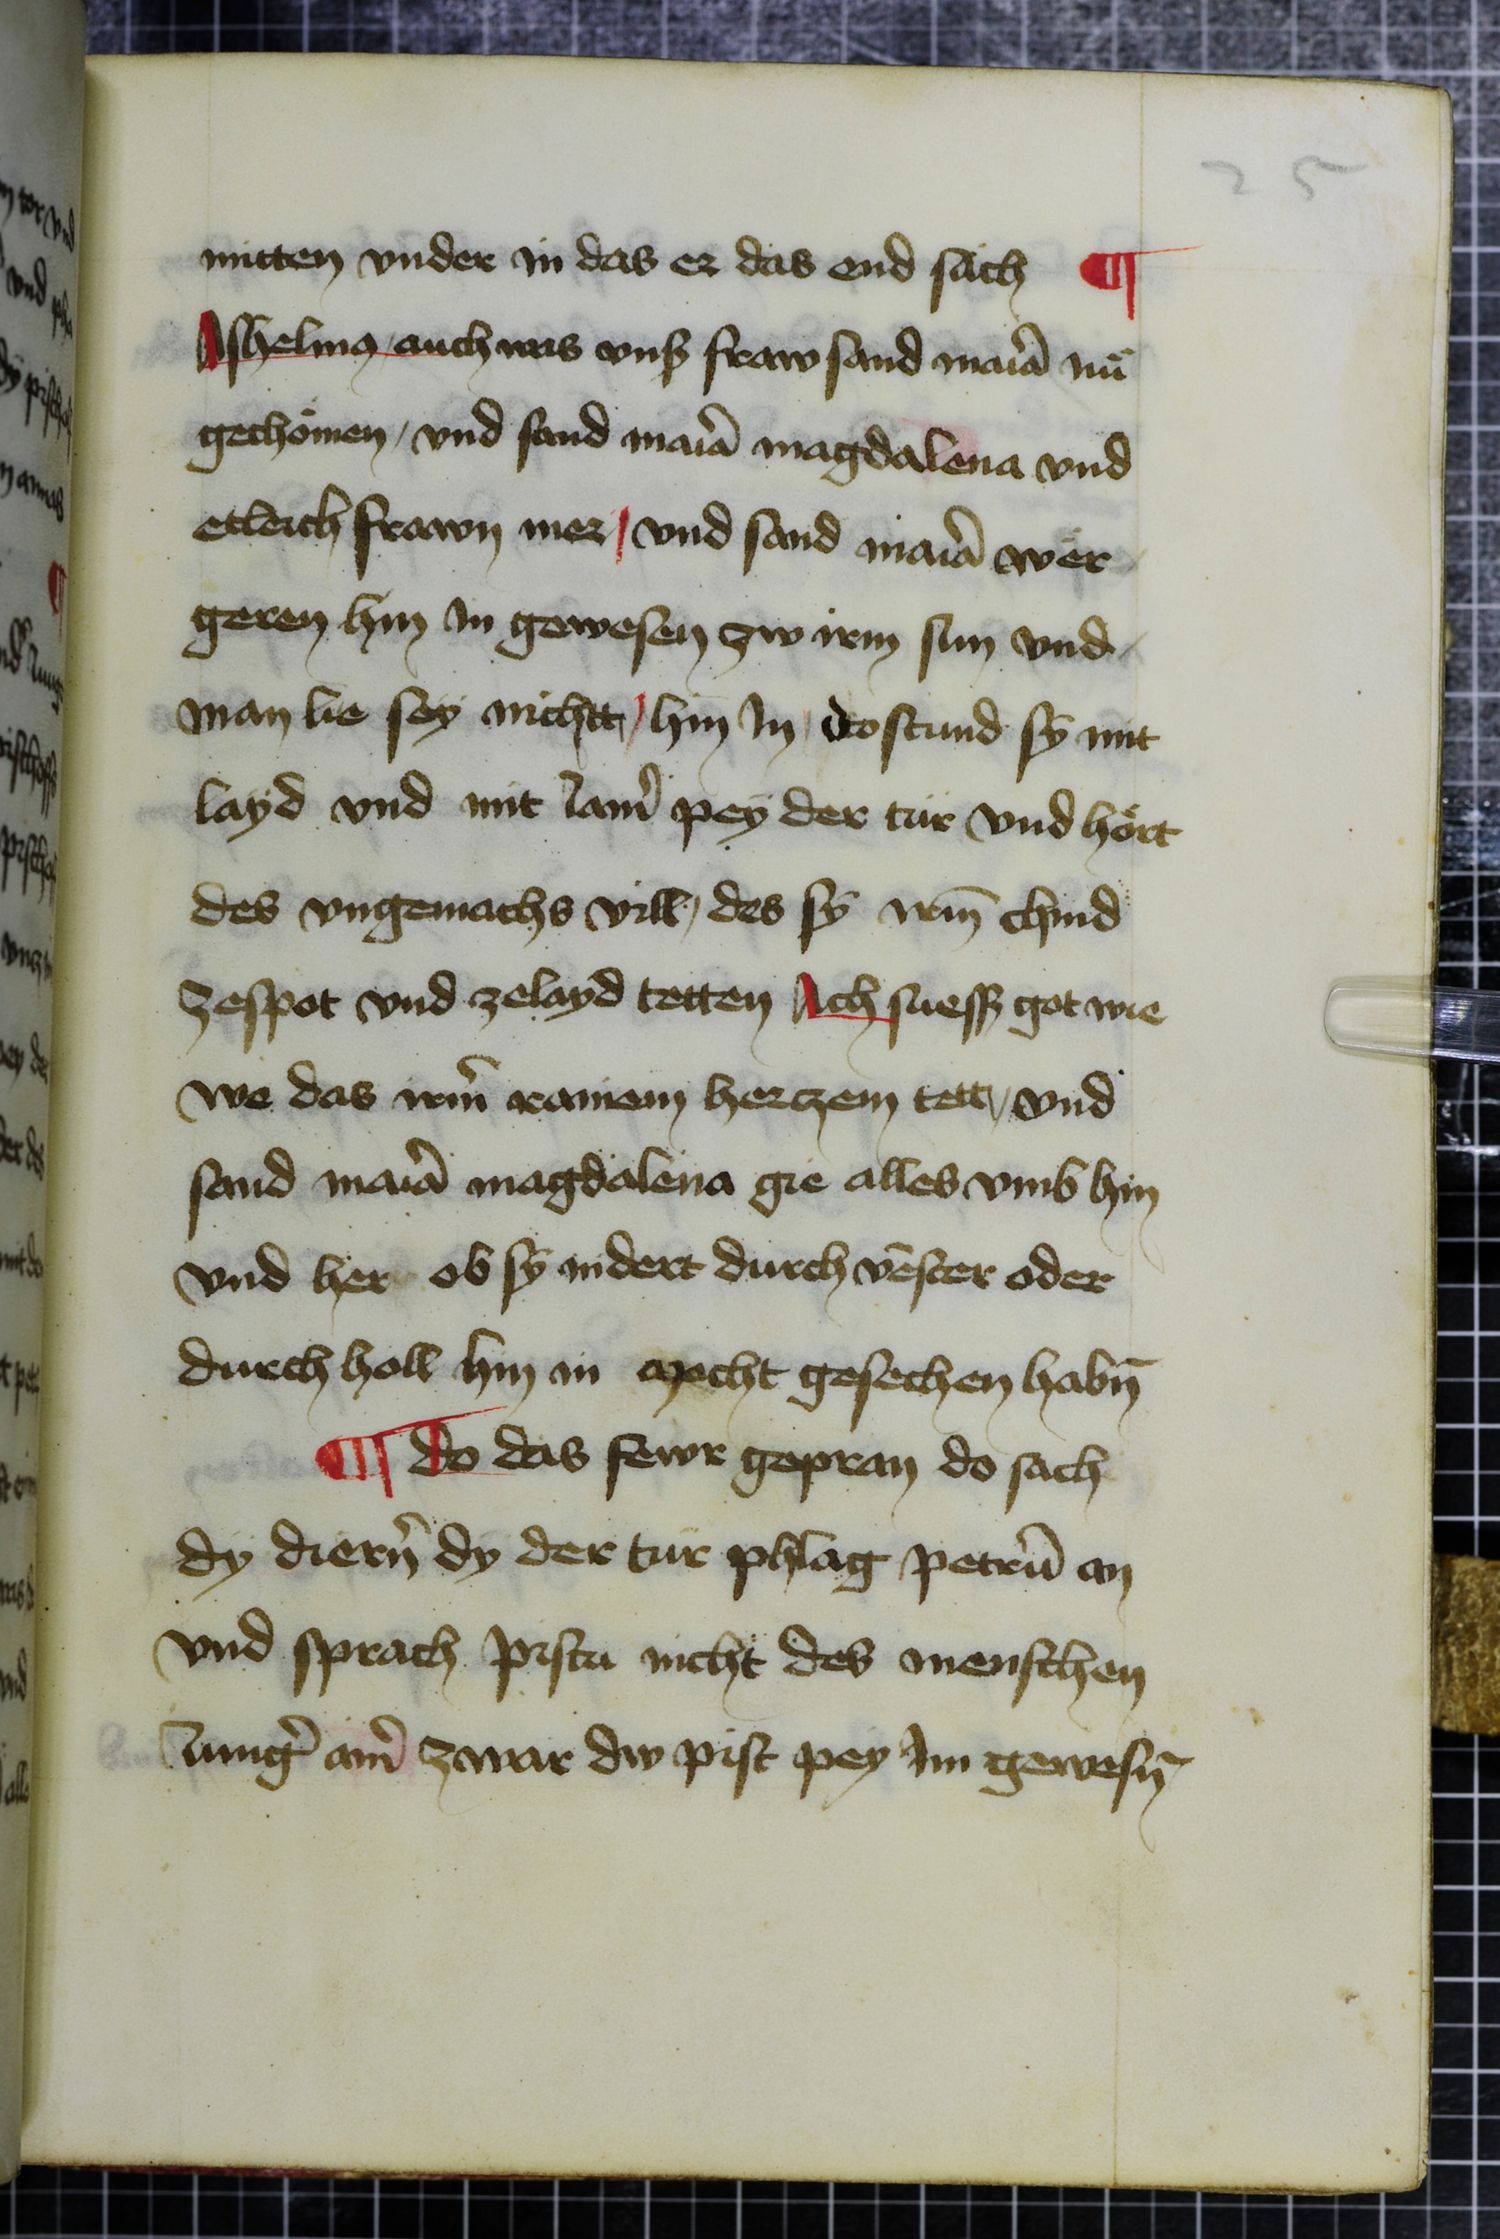 25
mitten vnder in das er das end säch ¶
Ashelmꝯ / auch was vnß fraw sand maria᷑ nu᷑
gechömen / vnd sand maria᷑ magdalena vnd
etleich frawn mer / vnd sand maria᷑ wër
geren hin in gewesen zw irm sun vnd
man lie sey nicht / hin in do stund sÿ mit
layd vnd mit iam᷑ pey der tür vnd hört
des vngemachs vill / des sÿ irm̄ chind
zespot vnd zelayd tetten Ach suess got wie
we das irm᷑ rainem herczem tett / vnd
sand maria᷑ magdalena gie alles vmb hin
vnd her ob sÿ indert durch vēster oder
durch holl hin in mocht gesechen habn̄
¶ do das fewr gepran do sach
dy diern᷑ dy der tür phlag petru᷑ an
vnd sprach pistu nicht des menschen
iung᷑ ain᷑ zwar dw pist pey im gewesn̄